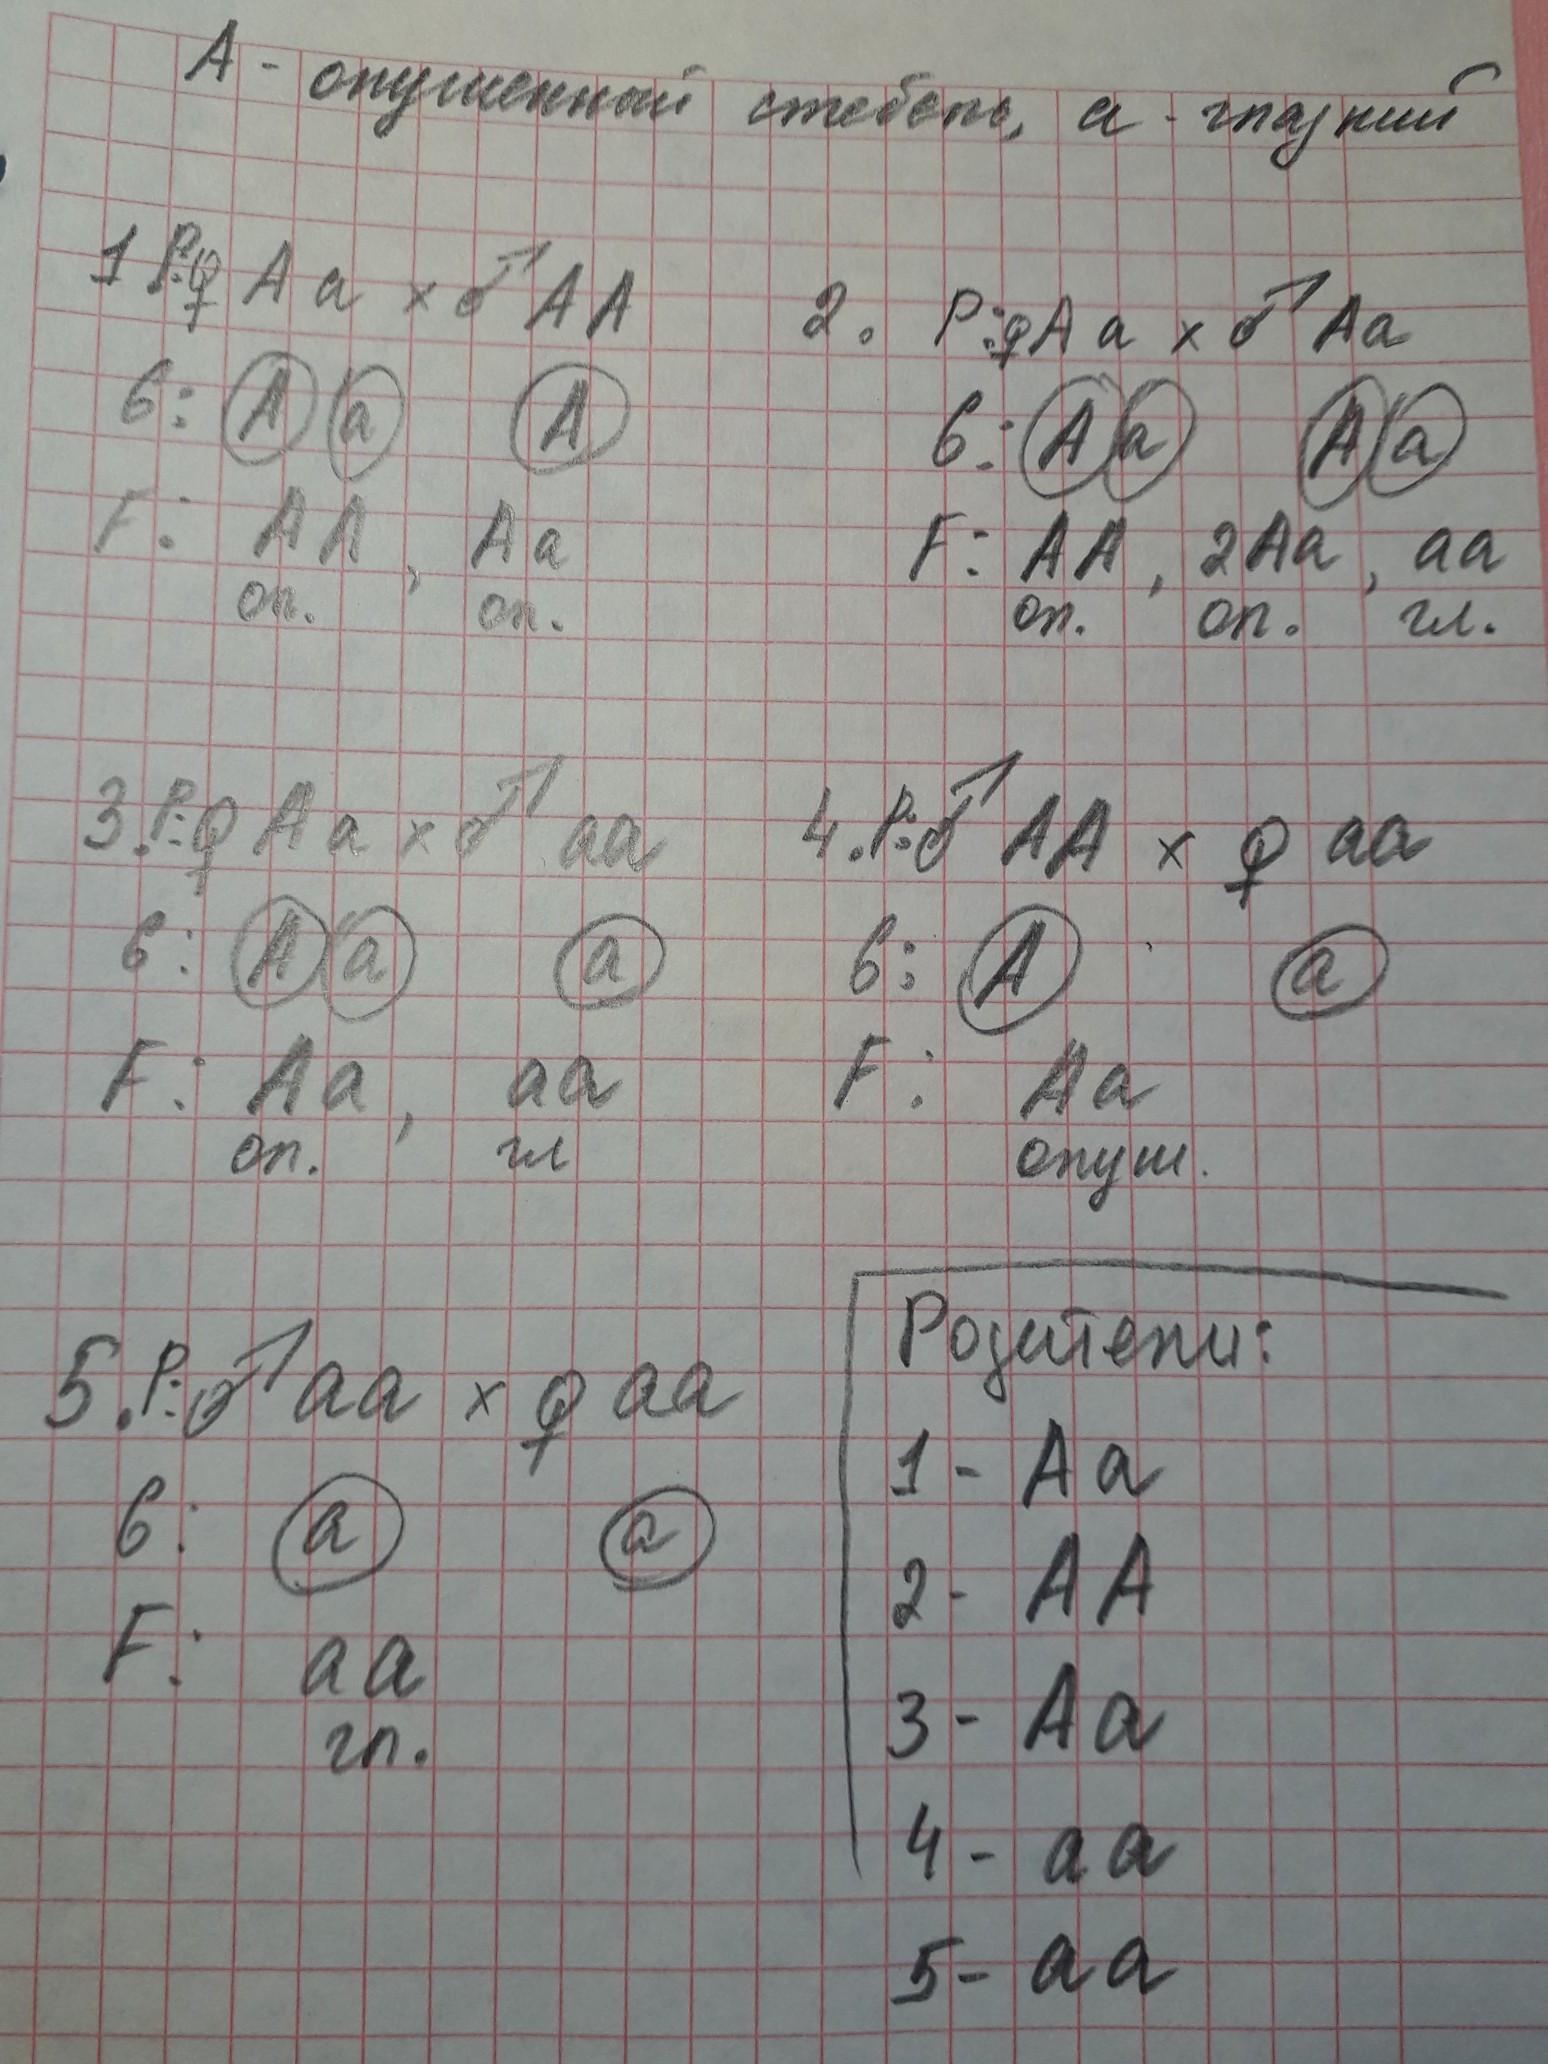 А - опушенный стебель, а - гладкий
1 P: ♀ Aa x ♂ AA
G: A a A
F: AA, Aa
оп. оп.
2. P: ♀ Aa x ♂ Aa
G: A a A a
F: AA, 2Aa, aa
оп. оп. гл.
3. P: ♀ Aa x ♂ aa
G: A a a
F: Aa, aa
оп. гл
4. P: ♂ AA x ♀ aa
G: A a
F: Aa
опуш.
5. P: ♂ aa x ♀ aa
G: a a
F: aa
гл.
Родители:
1 - Aa
2 - AA
3 - Aa
4 - aa
5 - aa